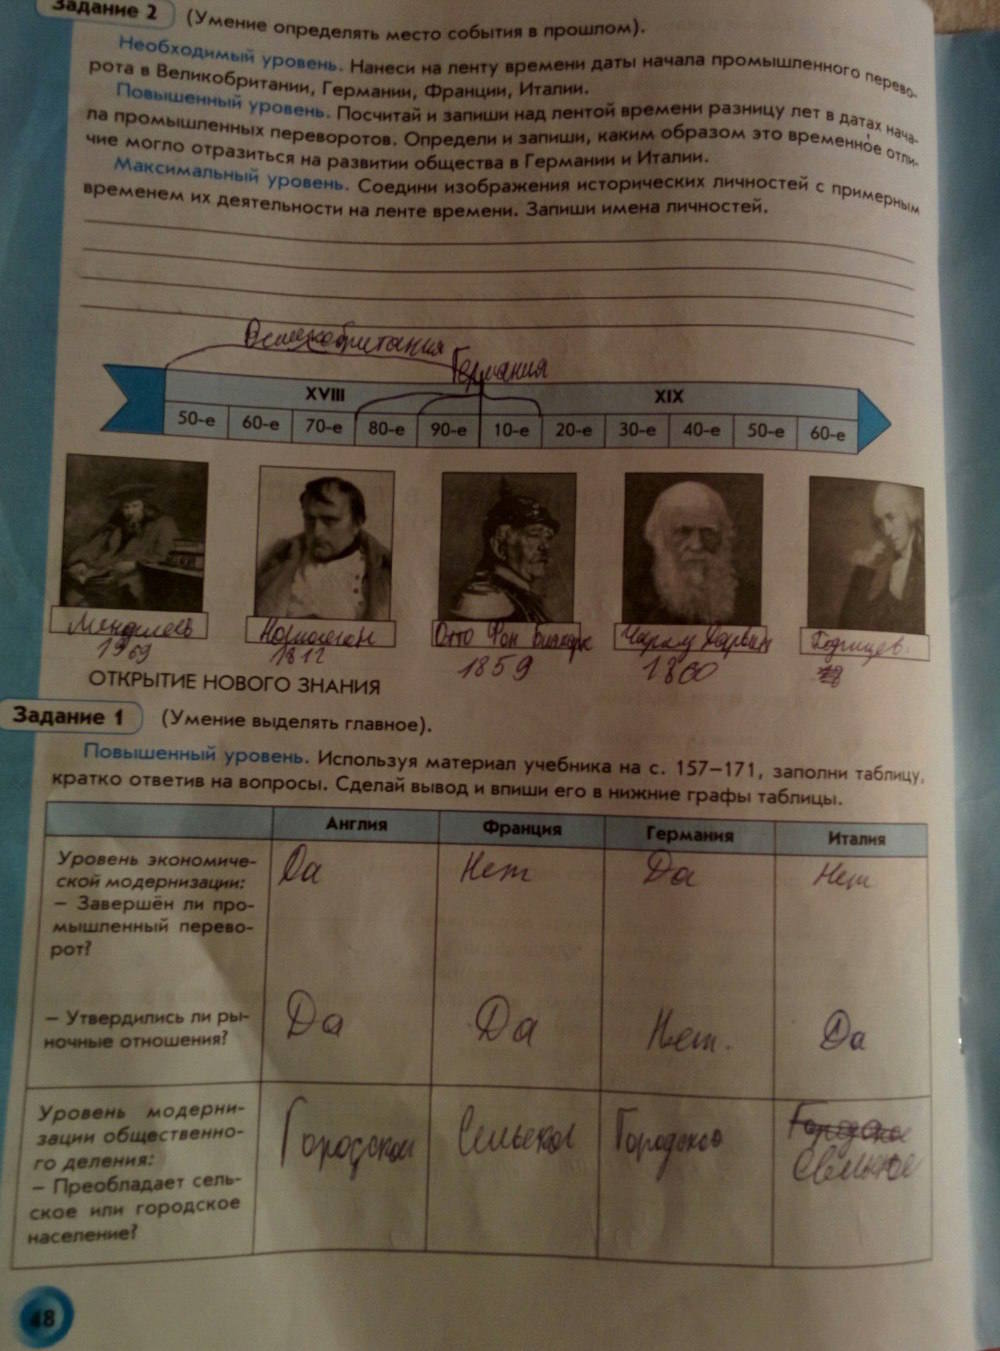 Задание 2 (Умение определять место события в прошлом).
Необходимый уровень. Нанеси на ленту времени даты начала промышленного перево-
рота в Великобритании, Германии, Франции, Италии.
Повышенный уровень. Посчитай и запиши над лентой времени разницу лет в датах нача-
ла промышленных переворотов. Определи и запиши, каким образом это временное отли-
чие могло отразиться на развитии общества в Германии и Италии.
Максимальный уровень. Соедини изображения исторических личностей с примерным
временем их деятельности на ленте времени. Запиши имена личностей.
Германия
XVIII XIX
50-е 60-е 70-е 80-е 90-е 10-е 20-е 30-е 40-е 50-е 60-е
Отто Фон
1812 1859 1860
ОТКРЫТИЕ НОВОГО ЗНАНИЯ
Задание 1 (Умение выделять главное).
Повышенный уровень. Используя материал учебника на с. 157–171, заполни таблицу,
кратко ответив на вопросы. Сделай вывод и впиши его в нижние графы таблицы.
Англия Франция Германия Италия
Уровень экономиче-
ской модернизации:
– Завершён ли про-
мышленный перево-
рот?
Да Нет Да Нет
– Утвердились ли ры-
ночные отношения?
Да Да Нет. Да
Уровень модерни-
зации общественно-
го деления:
– Преобладает сель-
ское или городское
население?
48